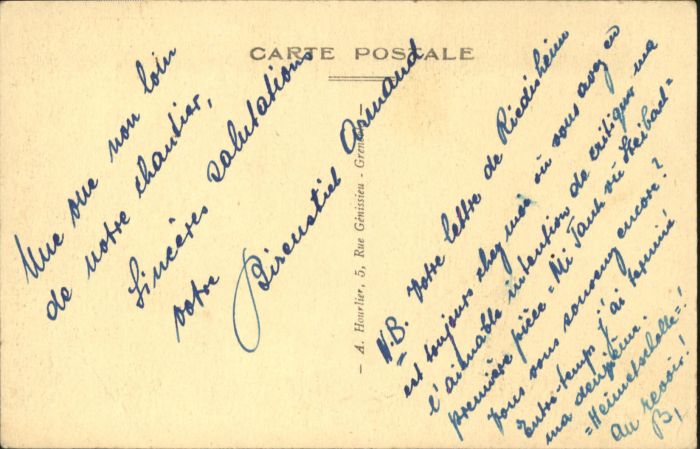 CARTE POSTALE
Une vue non loin
de notre chantier,
Sincères salutations
votre
Armand
— A. Hourlier, 5, Rue Génissieu - Grenoble —
N.B. Votre lettre de Riedisheim
est toujours chez moi où vous avez eu
l'aimable intention de critiquer ma
première pièce = Mi Tanta vu
Vous vous souvenez encore?
Entre-temps j'ai terminé
ma deuxième.
=Heimetschelle=!
Au revoir!
B,